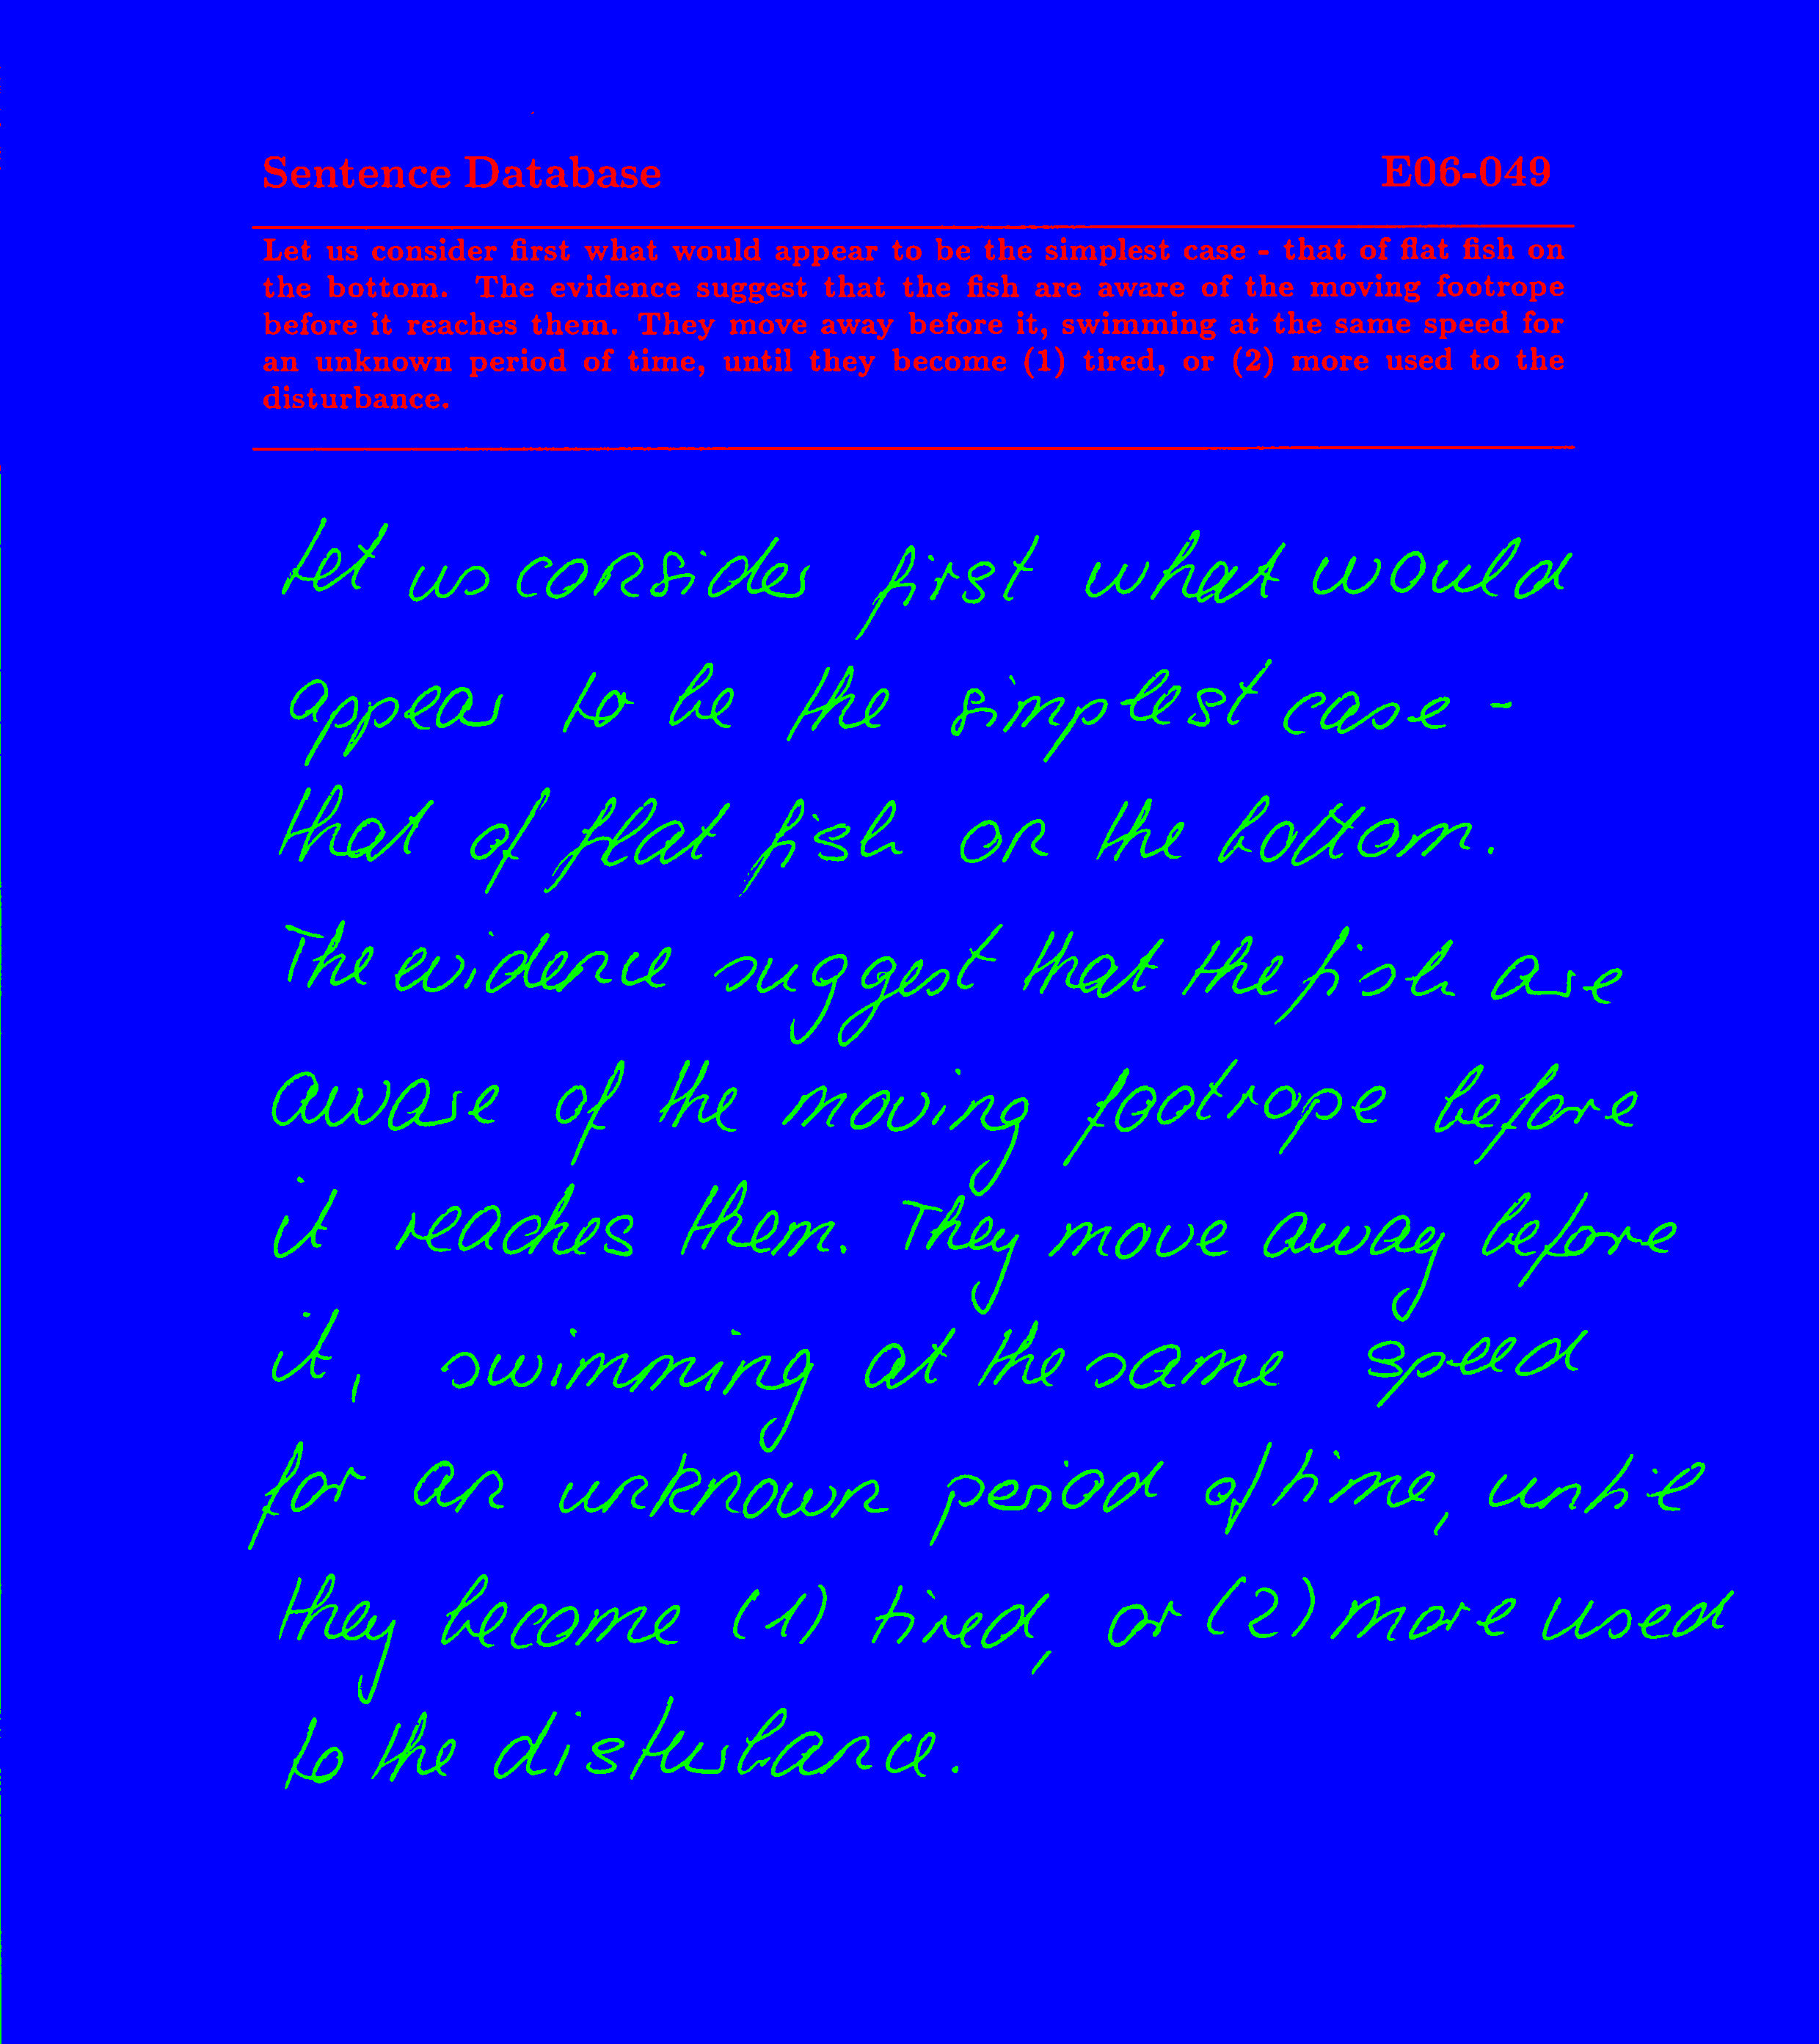 Sentence Database E06-049
Let us consider first what would appear to be the simplest case - that of flat fish on
the bottom. The evidence suggest that the fish are aware of the moving footrope
before it reaches them. They move away before it, swimming at the same speed for
an unknown period of time, until they become (1) tired, or (2) more used to the
disturbance.
Let us consider first what would
appear to be the simplest case -
that of flat fish on the bottom.
The evidence suggest that the fish are
aware of the moving footrope before
it reaches them. They move away before
it, swimming at the same speed
for an unknown period of time, until
they become (1) tired, or (2) more used
to the disturbance.